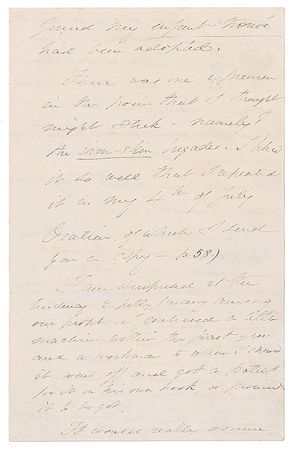 found my infant trouvé
had been adopted.
There was one expression
in the poem that I thought
might stick — namely
the
I liked
it so well that I repeated
it in my 4th of July
Oration of which I send
you a copy — (p 53.)
I am surprised at the
tendency to petty larceny among
our people. I contrived a little
machine within the past year
and a workman to whom I showed
it went off and got a patent
for it in his own
it to be got.
It would really